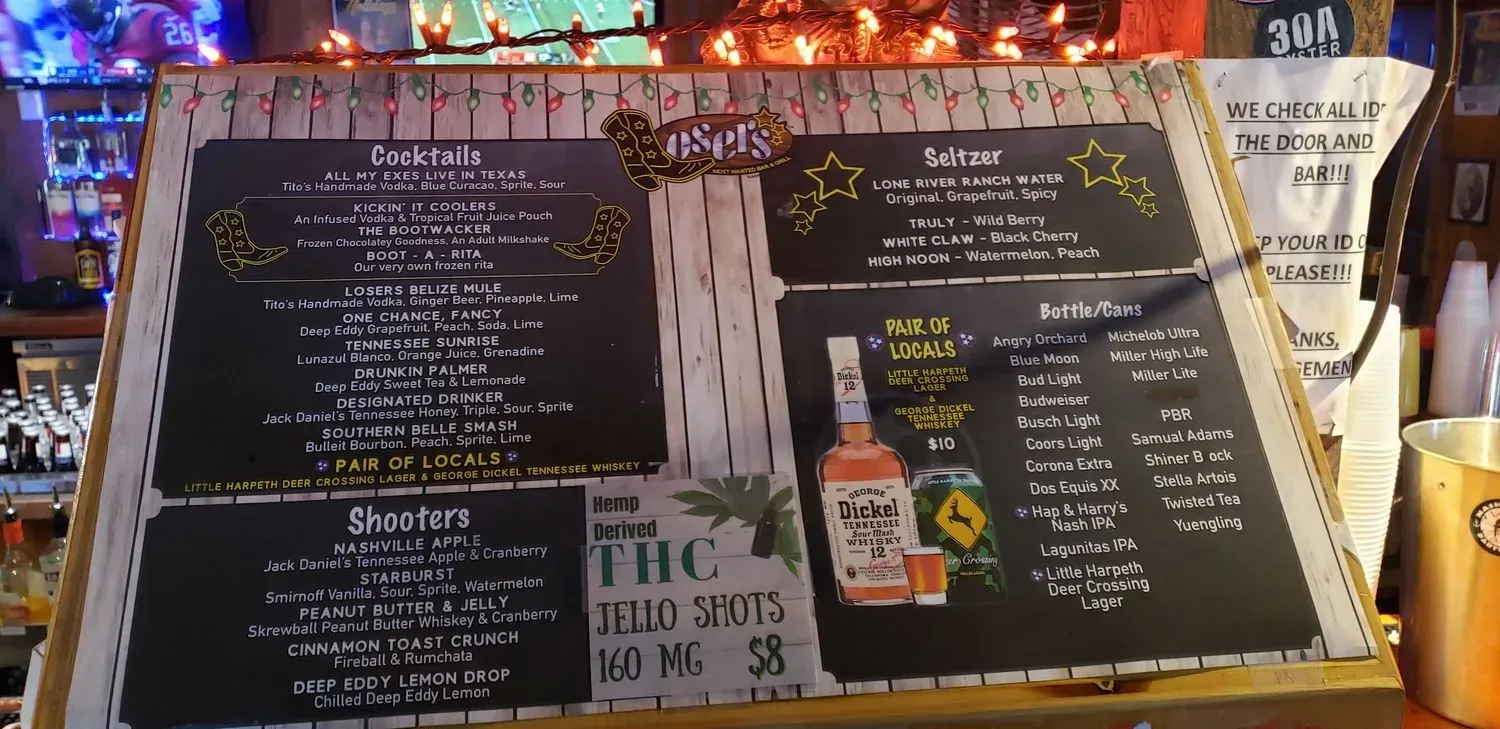 26
30A
OYSTER
Losers
MOST WANTED BAR & GRILL
Cocktails
ALL MY EXES LIVE IN TEXAS
Tito's Handmade Vodka, Blue Curacao, Sprite, Sour
KICKIN' IT COOLERS
An Infused Vodka & Tropical Fruit Juice Pouch
THE BOOTWACKER
Frozen Chocolatey Goodness, An Adult Milkshake
BOOT - A - RITA
Our very own frozen rita
LOSERS BELIZE MULE
Tito's Handmade Vodka, Ginger Beer, Pineapple, Lime
ONE CHANCE, FANCY
Deep Eddy Grapefruit, Peach, Soda, Lime
TENNESSEE SUNRISE
Lunazul Blanco, Orange Juice, Grenadine
DRUNKIN PALMER
Deep Eddy Sweet Tea & Lemonade
DESIGNATED DRINKER
Jack Daniel's Tennessee Honey, Triple, Sour, Sprite
SOUTHERN BELLE SMASH
Bulleit Bourbon, Peach, Sprite, Lime
PAIR OF LOCALS
LITTLE HARPETH DEER CROSSING LAGER & GEORGE DICKEL TENNESSEE WHISKEY
Shooters
NASHVILLE APPLE
Jack Daniel's Tennessee Apple & Cranberry
STARBURST
Smirnoff Vanilla, Sour, Sprite, Watermelon
PEANUT BUTTER & JELLY
Skrewball Peanut Butter Whiskey & Cranberry
CINNAMON TOAST CRUNCH
Fireball & Rumchata
DEEP EDDY LEMON DROP
Chilled Deep Eddy Lemon
Hemp
Derived
THC
JELLO SHOTS
160 MG $8
Seltzer
LONE RIVER RANCH WATER
Original, Grapefruit, Spicy
TRULY - Wild Berry
WHITE CLAW - Black Cherry
HIGH NOON - Watermelon, Peach
PAIR OF
LOCALS
LITTLE HARPETH
DEER CROSSING
LAGER
&
GEORGE DICKEL
TENNESSEE
WHISKEY
$10
Dickel
12
GEORGE
Dickel
TENNESSEE
Sour Mash
WHISKY
12
Crossing
Bottle/Cans
Angry Orchard
Blue Moon
Bud Light
Budweiser
Busch Light
Coors Light
Corona Extra
Dos Equis XX
Hap & Harry's
Nash IPA
Lagunitas IPA
Little Harpeth
Deer Crossing
Lager
Michelob Ultra
Miller High Life
Miller Lite
PBR
Samual Adams
Shiner B ock
Stella Artois
Twisted Tea
Yuengling
WE CHECK ALL ID
THE DOOR AND
BAR!!!
P YOUR ID O
PLEASE!!!
ANKS,
GEMEN